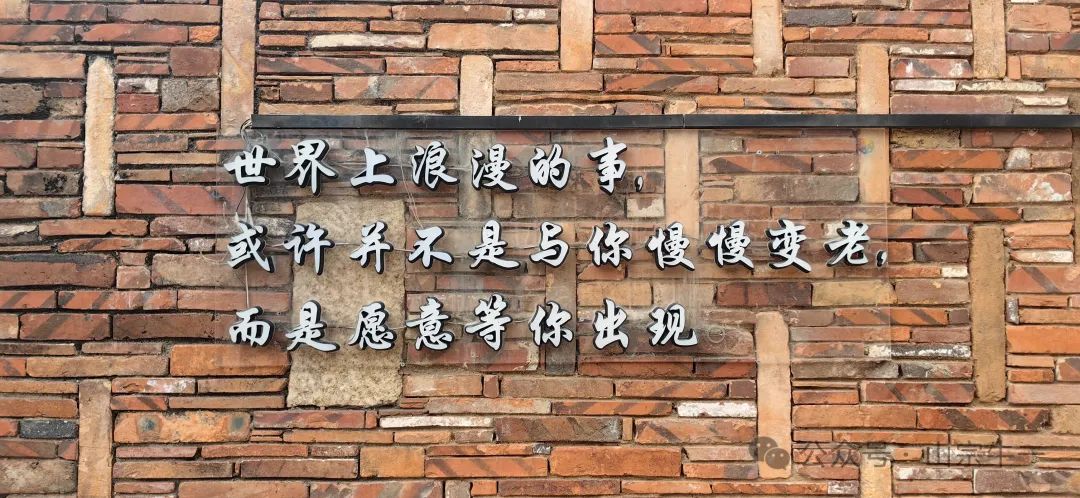 世界上浪漫的事,
或许并不是与你慢慢变老,
而是愿意等你出现
公众号·山水牛